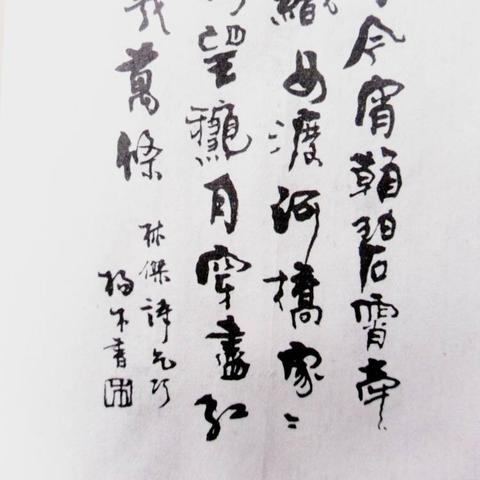 今宵看碧霄牽
織女渡河橋家〻
望龝月穿盡紅
幾萬條
林傑詩乞巧
書